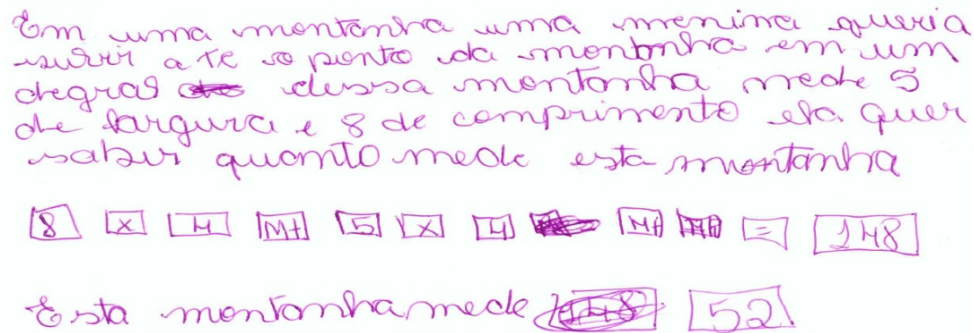 Em uma montanha uma menina queria
suvir a te o ponto da montanha em um
degral dessa montanha mede 5
de largura e 8 de comprimento ela quer
saber quanto mede esta montanha
8 X 4 M+ 5 X 4 M+ = 148
Esta montanha mede 52